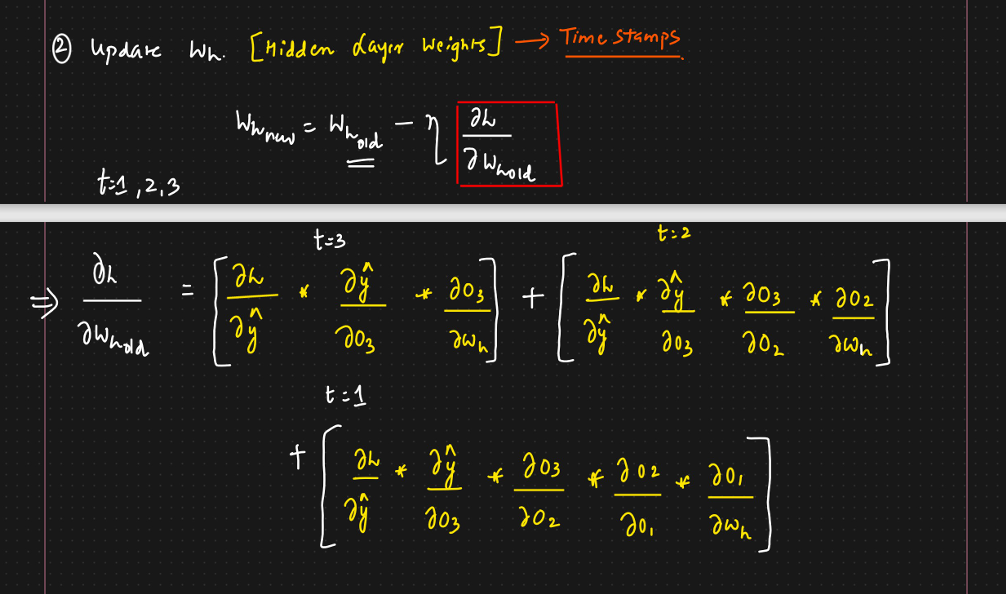 ② Update Wh. [Hidden Layer Weights] → Time Stamps.
Wh_new = Wh_old − η ∂L/∂Wh_old
t=1,2,3
t=3 t=2
⇒ ∂L/∂Wh_old = [∂L/∂ŷ * ∂ŷ/∂O₃ * ∂O₃/∂Wh] + [∂L/∂ŷ * ∂ŷ/∂O₃ * ∂O₃/∂O₂ * ∂O₂/∂Wh]
t=1
+ [∂L/∂ŷ * ∂ŷ/∂O₃ * ∂O₃/∂O₂ * ∂O₂/∂O₁ * ∂O₁/∂Wh]